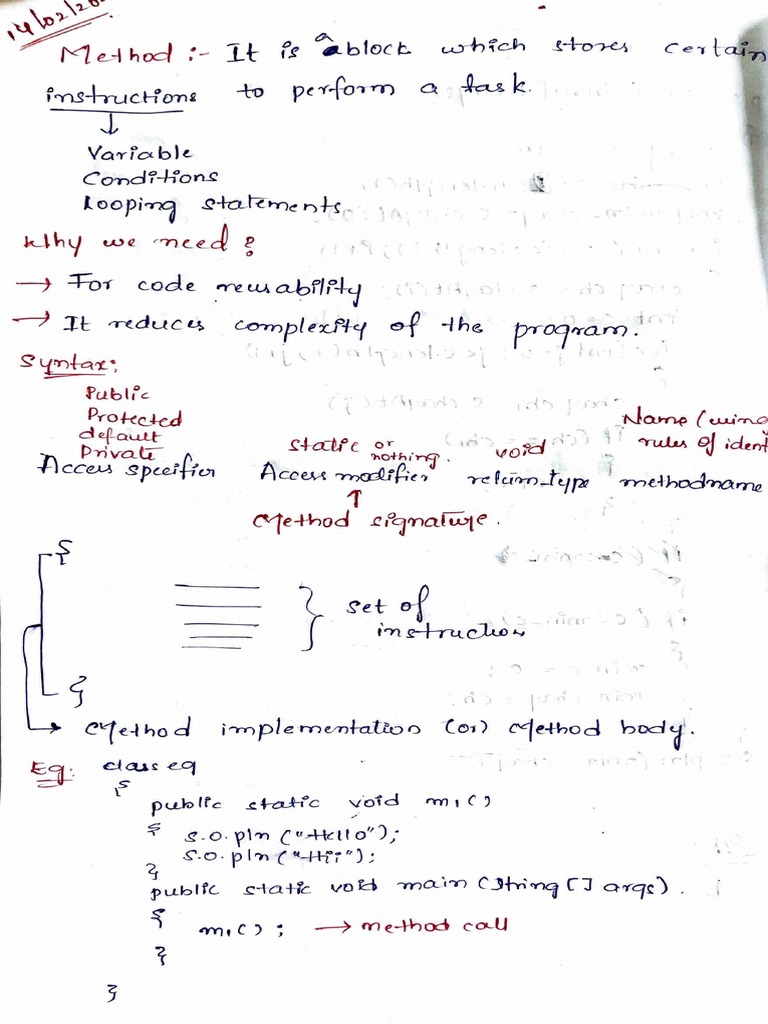 14/02/20
Method :- It is a block which stores certain
instructions to perform a task.
Variable
Conditions
Looping statements.
Why we need?
→ For code reusability
→ It reduces complexity of the program.
Syntax:
Public
Protected
default
Private
static or nothing.
void
Name (
rules of ident
Access specifier Access modifier return_type methodname
↑
Method signature.
{
} set of
instruction
}
Method implementation (or) Method body.
Eg: class eg
{
public static void m1()
{ s.o.pln ("Hello");
s.o.pln ("Hii");
}
public static void main (String [] args).
{ m1(); → method call
}
}